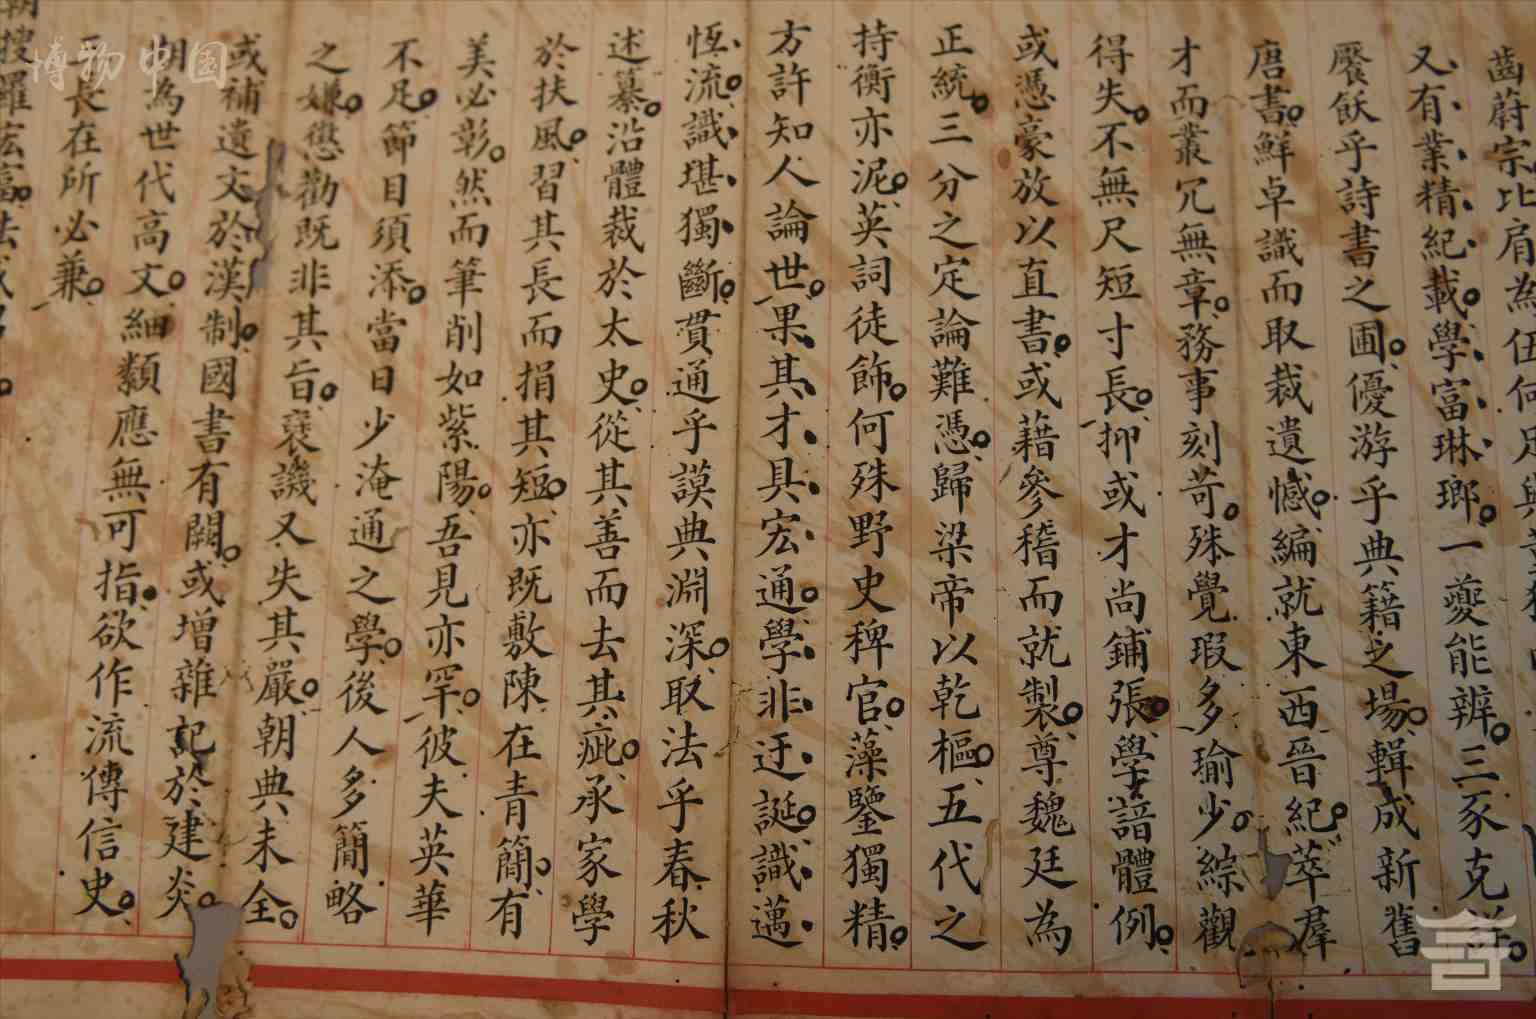 齒蔚宗比肩為伍何足與
又有業精紀載學富琳瑯一夔能辨三豕克詳
饜飫乎詩書之圃優游乎典籍之場輯成新舊
唐書鮮卓識而取裁遺憾編就東西晉紀萃羣
才而叢冗無章務事刻苛殊覺瑕多瑜少綜觀
得失不無尺短寸長抑或才尚鋪張學諳體例
或憑豪放以直書或藉參稽而就製尊魏廷為
正統三分之定論難憑歸梁帝以乾樞五代之
持衡亦泥英詞徒飾何殊野史稗官藻鑒獨精
方許知人論世果其才具宏通學非迂誕識邁
恆流識堪獨斷貫通乎謨典淵深取法乎春秋
述纂沿體裁於太史從其善而去其疵承家學
於扶風習其長而捐其短亦既敷陳在青簡有
美必彰然而筆削如紫陽吾見亦罕彼夫英華
不足節目須添當日少淹通之學後人多簡略
之嫌懲勸既非其旨褒譏又失其嚴朝典未全
或補遺文於漢制國書有闕或增雜記於建炎
朝為世代高文細類應無可指欲作流傳信史
長在所必兼
搜羅宏富法
博物中国